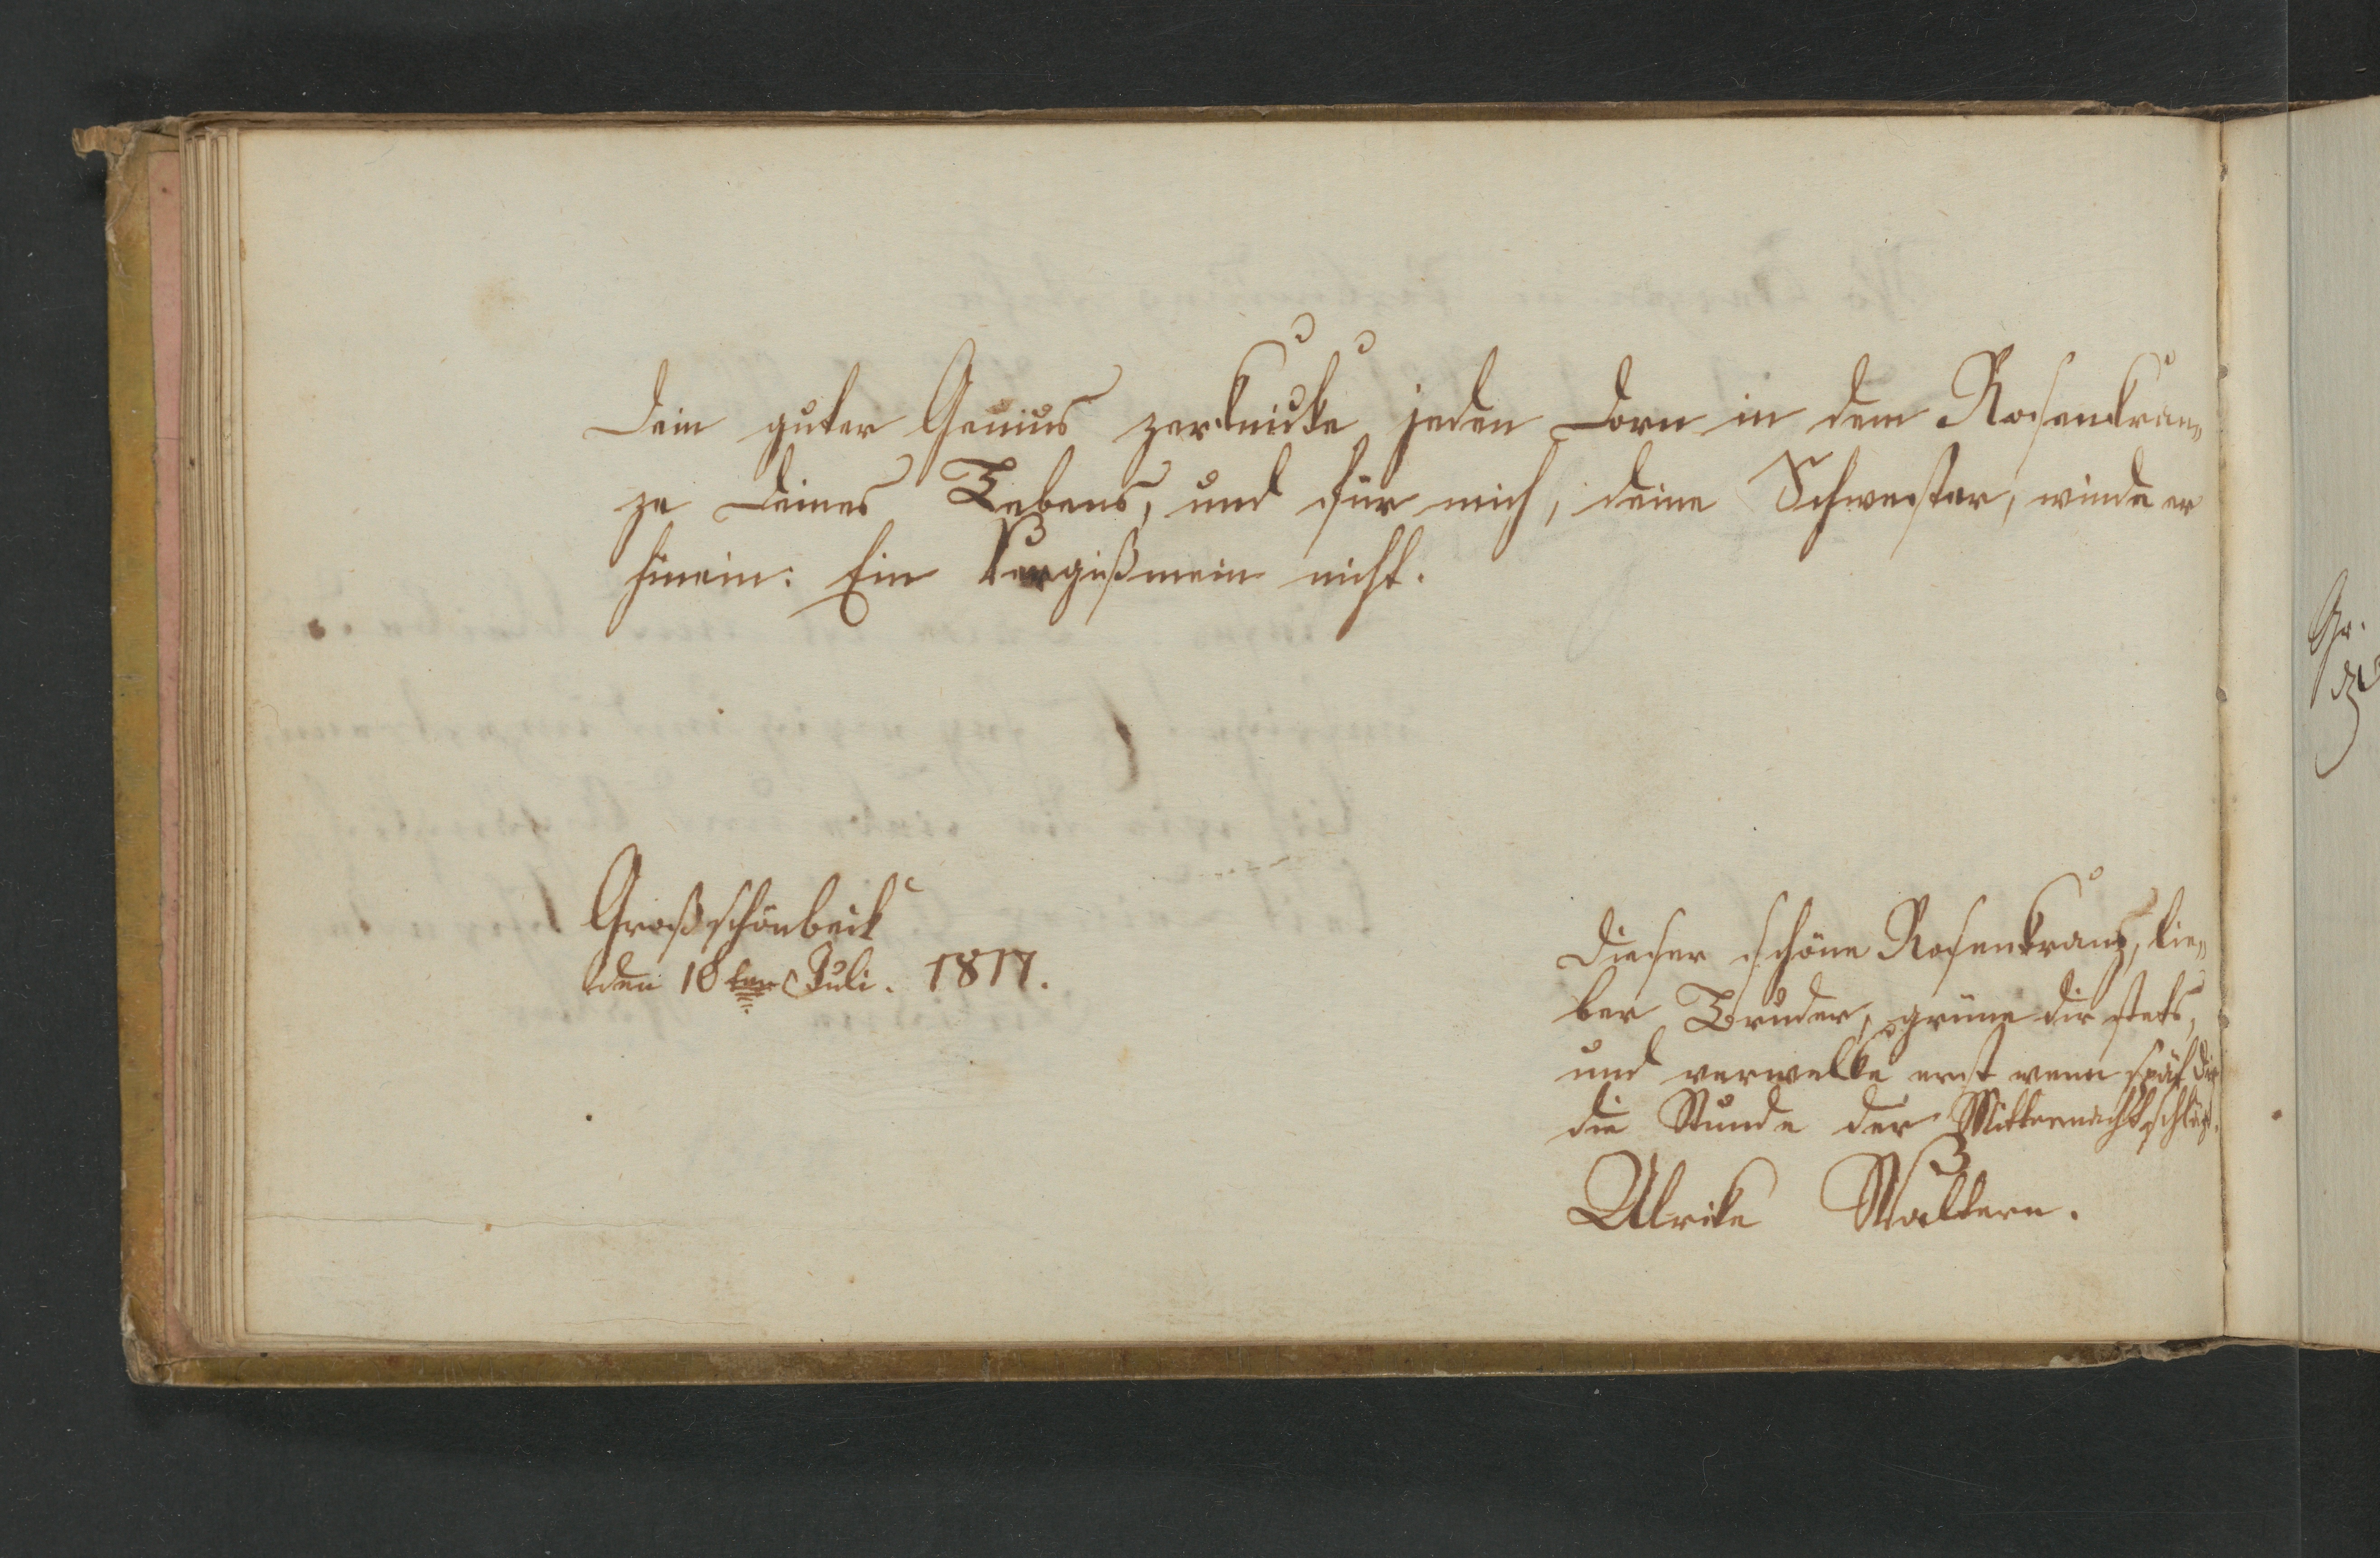 Dein guter Genius zerknicke jeden Dorn in dem Rosenkran„
ze Deines Lebens, und für mich, deine Schwester, winde er
hinein: Ein Vergißmein nicht.
Großschönbeck
den 18ten Juli. 1817.
Dieser schöne Rosenkranz, lie„
ber Bruder, grüne dir stets,
und verwelke erst wenn spät dir
die Stunde der Mitternacht schlägt.
Ulrike Waltern.
Gr.